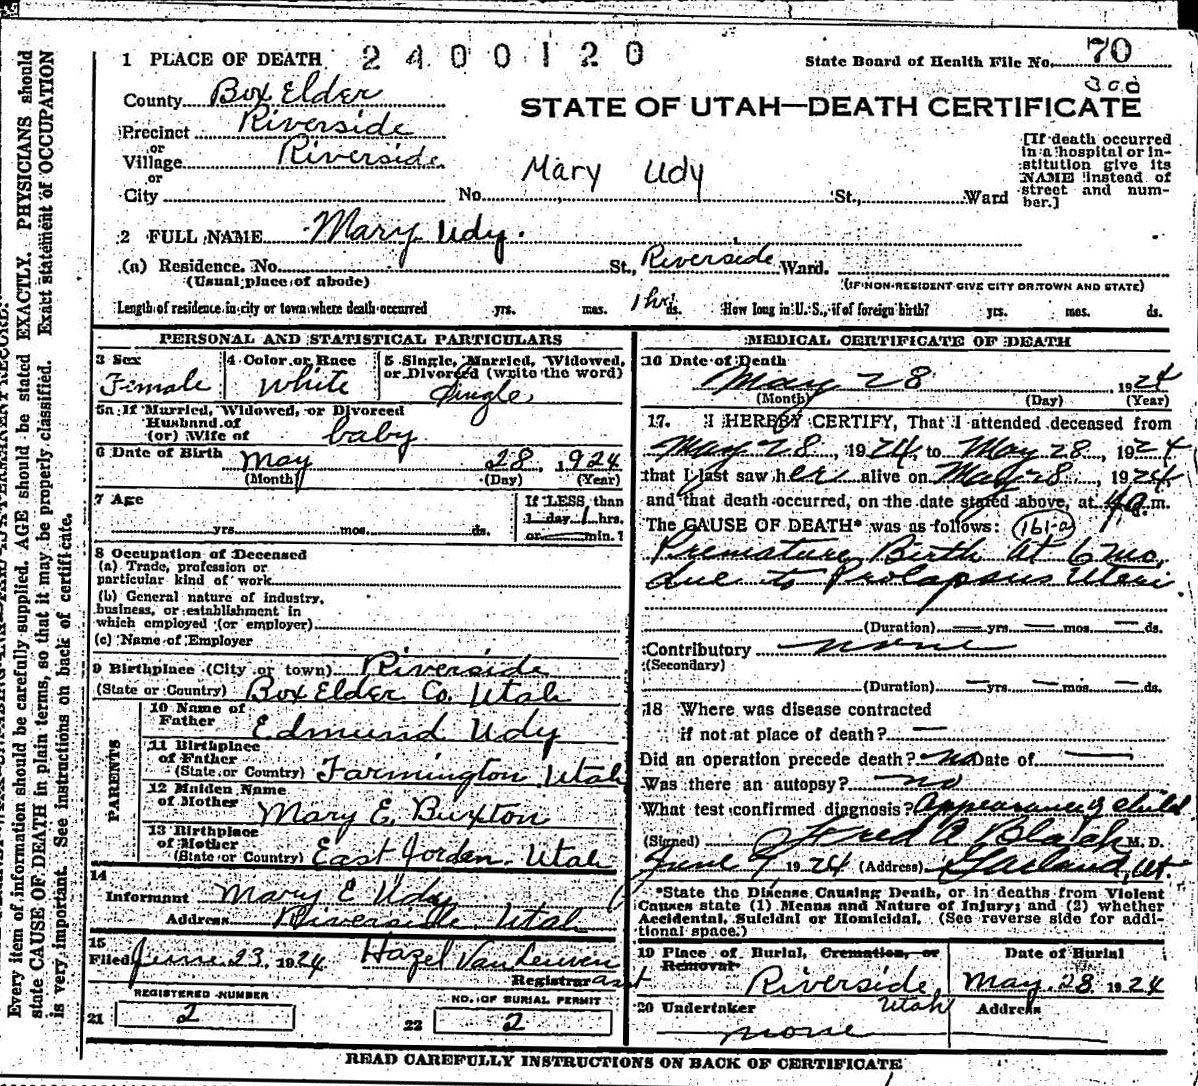 1 PLACE OF DEATH 2400120
State Board of Health File No. 70
300
County Box Elder
STATE OF UTAH—DEATH CERTIFICATE
Precinct Riverside
or
Village Riverside
or
City
Mary Udy
No. St., Ward
[If death occurred
in a hospital or in-
stitution give its
NAME instead of
street and num-
ber.]
2 FULL NAME Mary Udy.
(a) Residence. No. St., Riverside Ward.
(Usual place of abode) (IF NON-RESIDENT GIVE CITY OR TOWN AND STATE)
Length of residence in city or town where death occurred yrs. mos. 1 hr ds. How long in U. S., if of foreign birth? yrs. mos. ds.
PERSONAL AND STATISTICAL PARTICULARS
3 Sex
Female
4 Color or Race
White
5 Single, Married, Widowed,
or Divorced (write the word)
Single
5a If Married, Widowed, or Divorced
Husband of
(or) Wife of baby
6 Date of Birth May 28, 1924
(Month) (Day) (Year)
7 Age
yrs. mos. ds.
If LESS than
1 day 1 hrs.
or — min.?
8 Occupation of Deceased
(a) Trade, profession or
particular kind of work
(b) General nature of industry,
business, or establishment in
which employed (or employer)
(c) Name of Employer
9 Birthplace (City or town) Riverside
(State or Country) Box Elder Co. Utah
PARENTS
10 Name of
Father Edmund Udy
11 Birthplace
of Father
(State or Country) Farmington Utah
12 Maiden Name
of Mother Mary E. Buxton
13 Birthplace
of Mother
(State or Country) East Jordan. Utah
14
Informant Mary E Udy
Address Riverside Utah
15
Filed June 23, 1924 Hazel VanLeuven
Registrar asst
REGISTERED NUMBER
21 2
NO. OF BURIAL PERMIT
22 2
MEDICAL CERTIFICATE OF DEATH
16 Date of Death
May 28 1924
(Month) (Day) (Year)
17. I HEREBY CERTIFY, That I attended deceased from
May 28, 1924, to May 28, 1924
that I last saw her alive on May 28, 1924
and that death occurred, on the date stated above, at 4 a.m.
The CAUSE OF DEATH* was as follows: 161-a
Premature Birth at 6 mo.
due to Prolapsus Uteri.
(Duration) — yrs. — mos. — ds.
Contributory none
(Secondary)
(Duration) — yrs. — mos. — ds.
18 Where was disease contracted
if not at place of death? —
Did an operation precede death? no Date of —
Was there an autopsy? no
What test confirmed diagnosis? Appearance of child
(Signed) Fred A Blatch M. D.
June 9 1924 (Address) Garland, Ut.
*State the Disease Causing Death, or in deaths from Violent
Causes state (1) Means and Nature of Injury; and (2) whether
Accidental, Suicidal or Homicidal. (See reverse side for addi-
tional space.)
19 Place of Burial, Cremation, or
Removal
Riverside, Utah
Date of Burial
May 28 1924
20 Undertaker
none
Address
READ CAREFULLY INSTRUCTIONS ON BACK OF CERTIFICATE
Every item of information should be carefully supplied. AGE should be stated EXACTLY. PHYSICIANS should
state CAUSE OF DEATH in plain terms, so that it may be properly classified. Exact statement of OCCUPATION
is very important. See instructions on back of certificate.